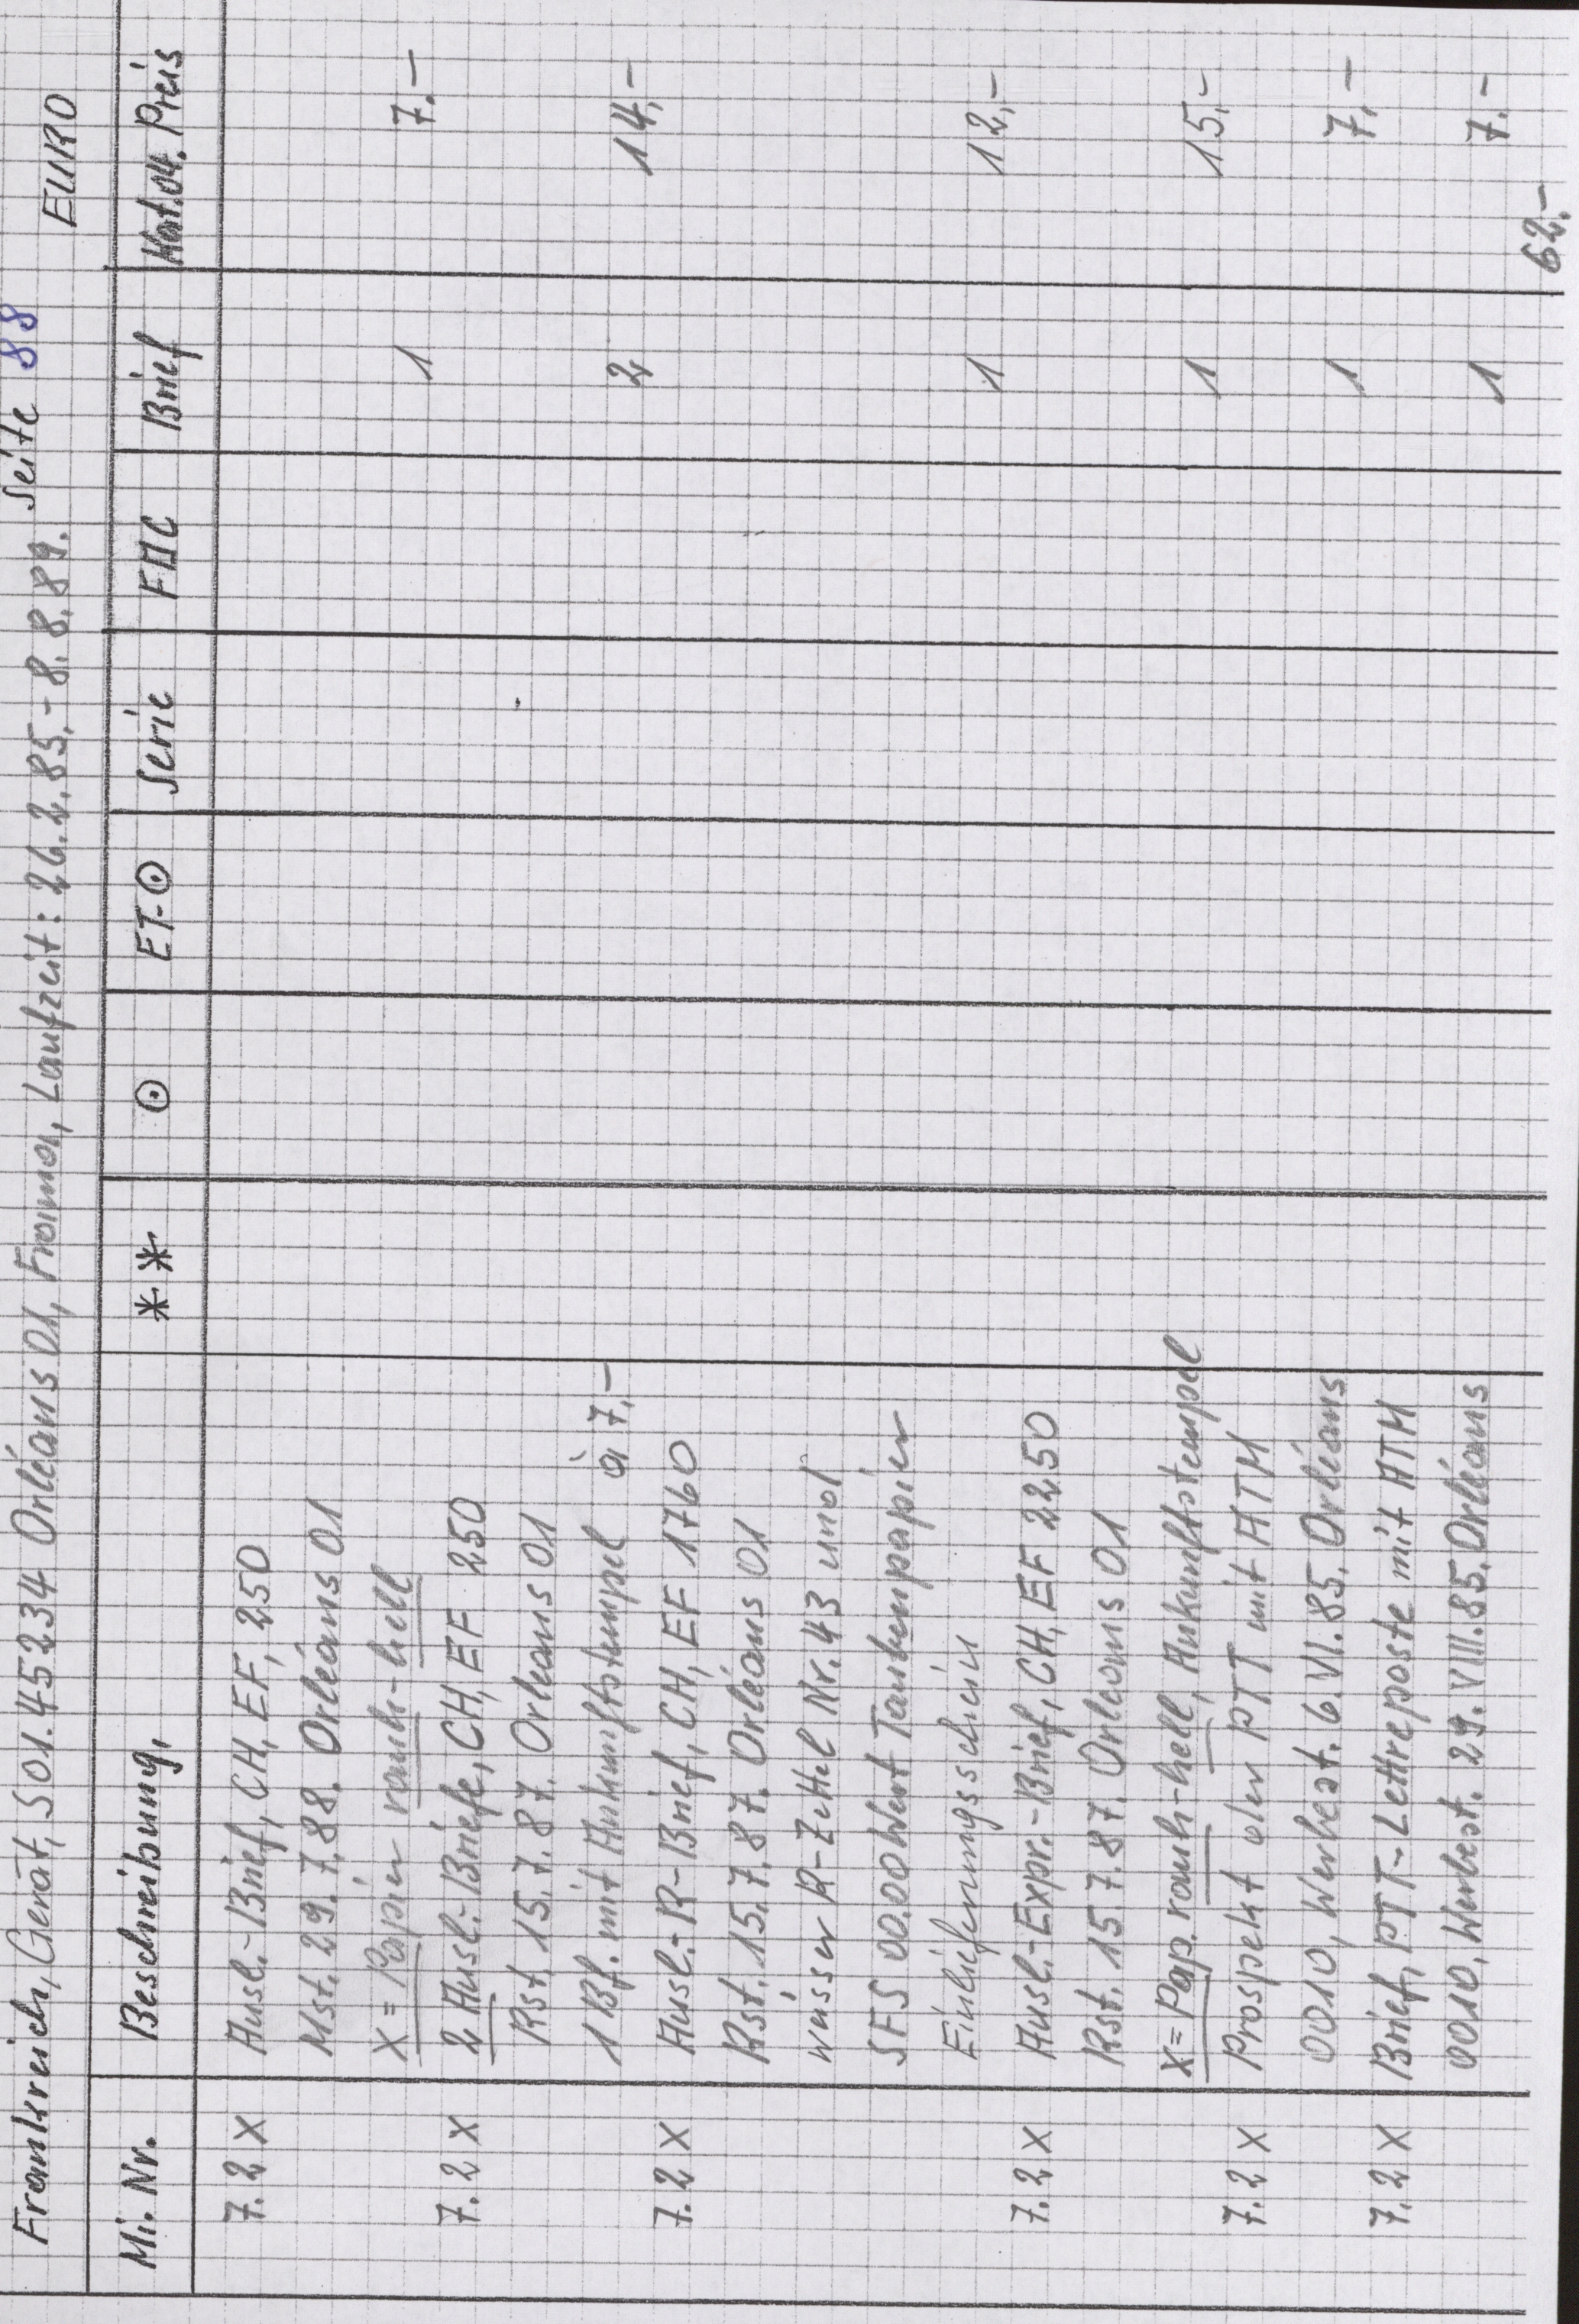 Frankreich, Gerät, S 01.45234 Orléans 01, Frama, Laufzeit: 26.2.85.- 8.8.89. Seite 88
EURO
Mi. Nr. Beschreibung, ** ⊙ ET-⊙ Serie FDC Brief Kat.04. Preis
7.2 X Ausl.-Brief, CH, EF, 250
Mst. 29.7.88. Orléans 01
X = Papier rauh-hell 1 7.-
7.2 X 2 Ausl.-Briefe, CH, EF 250
Rst. 15.7.87. Orleans 01
1 Bf. mit Ankunftstempel à 7,- 2 14,-
7.2 X Ausl.-R-Brief, CH, EF 1760
Rst. 15.7.87. Orléans 01
weisser R-Zettel Nr. 43 und
SFS 00.00 Wert Taubenpapier
Einlieferungsschein 1 12,-
7.2 X Ausl.-Expr.-Brief, CH, EF 2250
Rst. 15.7.87. Orleans 01
X = Pap. rauh-hell, Ankunftstempel 1 15,-
7.2 X Prospekt der PTT mit ATM
0010, Werbest. 6.VI.85. Orléans 1 7,-
7.2 X Brief, PTT-Lettreposte mit ATM
0010, Werbest. 29.VIII.85. Orléans 1 7.-
62.-